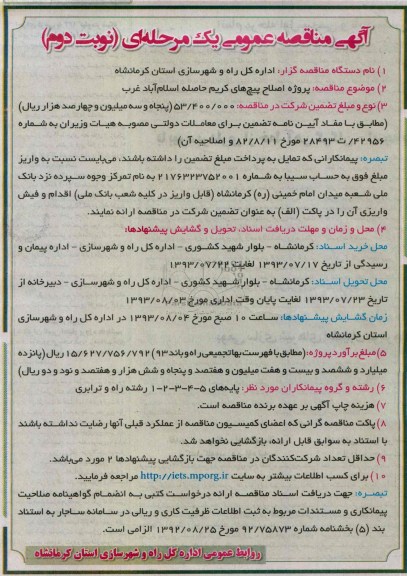 آگهی مناقصه عمومی یک مرحله‌ای (نوبت دوم)
۱) نام دستگاه مناقصه گزار: اداره کل راه و شهرسازی استان کرمانشاه
۲) موضوع مناقصه: پروژه اصلاح پیچ‌های کریم حاصله اسلام‌آباد غرب
۳) نوع و مبلغ تضمین شرکت در مناقصه: ۵۳/۴۰۰/۰۰۰ (پنجاه و سه میلیون و چهارصد هزار ریال)
(مطابق با مفاد آیین نامه تضمین برای معاملات دولتی مصوبه هیات وزیران به شماره
۴۲۹۵۶/ ت ۲۸۴۹۳ مورخ ۸۲/۸/۱۱ و اصلاحیه آن)
تبصره: پیمانکارانی که تمایل به پرداخت مبلغ تضمین را داشته باشند، می‌بایست نسبت به واریز
مبلغ فوق به حساب سیبا به شماره ۲۱۷۶۴۵۲۷۵۲۰۰۱ به نام تمرکز وجوه سپرده نزد بانک
ملی شعبه میدان امام خمینی (ره) کرمانشاه (قابل واریز در کلیه شعب بانک ملی) اقدام و فیش
واریزی آن را در پاکت (الف) به عنوان تضمین شرکت در مناقصه ارائه نمایند.
۴) محل و زمان و مهلت دریافت اسناد، تحویل و گشایش پیشنهادها:
محل خرید اسناد: کرمانشاه - بلوار شهید کشوری - اداره کل راه و شهرسازی - اداره پیمان و
رسیدگی از تاریخ ۱۳۹۳/۰۷/۱۷ لغایت ۱۳۹۳/۰۷/۲۲
محل تحویل اسناد: کرمانشاه - بلوار شهید کشوری - اداره کل راه و شهرسازی - دبیرخانه از
تاریخ ۱۳۹۳/۰۷/۲۳ لغایت پایان وقت اداری مورخ ۱۳۹۳/۰۸/۰۳
زمان گشایش پیشنهادها: ساعت ۱۰ صبح مورخ ۱۳۹۳/۰۸/۰۴ در اداره کل راه و شهرسازی
استان کرمانشاه
۵) مبلغ برآورد پروژه: (مطابق با فهرست بهاء تجمیعی راه و باند ۹۳) ۱۵/۶۲۷/۷۵۶/۷۹۲ ریال (پانزده
میلیارد و ششصد و بیست و هفت میلیون و هفتصد و پنجاه و شش هزار و هفتصد و نود و دو ریال)
۶) رشته و گروه پیمانکاران مورد نظر: پایه‌های ۵-۴-۳-۲-۱ رشته راه و ترابری
۷) هزینه چاپ آگهی بر عهده برنده مناقصه است.
۸) پاکت مناقصه گرانی که اعضای کمیسیون مناقصه از عملکرد قبلی آنها رضایت نداشته باشند
با استناد به سوابق قابل ارائه، بازگشایی نخواهد شد.
۹) حداقل تعداد شرکت‌کنندگان در مناقصه جهت بازگشایی پیشنهادها ۲ مورد می‌باشد.
۱۰) برای کسب اطلاعات بیشتر به سایت http://iets.mporg.ir مراجعه فرمایید.
تبصره: جهت دریافت اسناد مناقصه ارائه درخواست کتبی به انضمام گواهینامه صلاحیت
پیمانکاری و مستندات مربوط به ثبت اطلاعات ظرفیت کاری و ریالی در سامانه ساجار به استناد
بند (۵) بخشنامه شماره ۹۲/۷۵۸۷۳ مورخ ۱۳۹۲/۰۸/۲۵ الزامی است.
روابط عمومی اداره کل راه و شهرسازی استان کرمانشاه